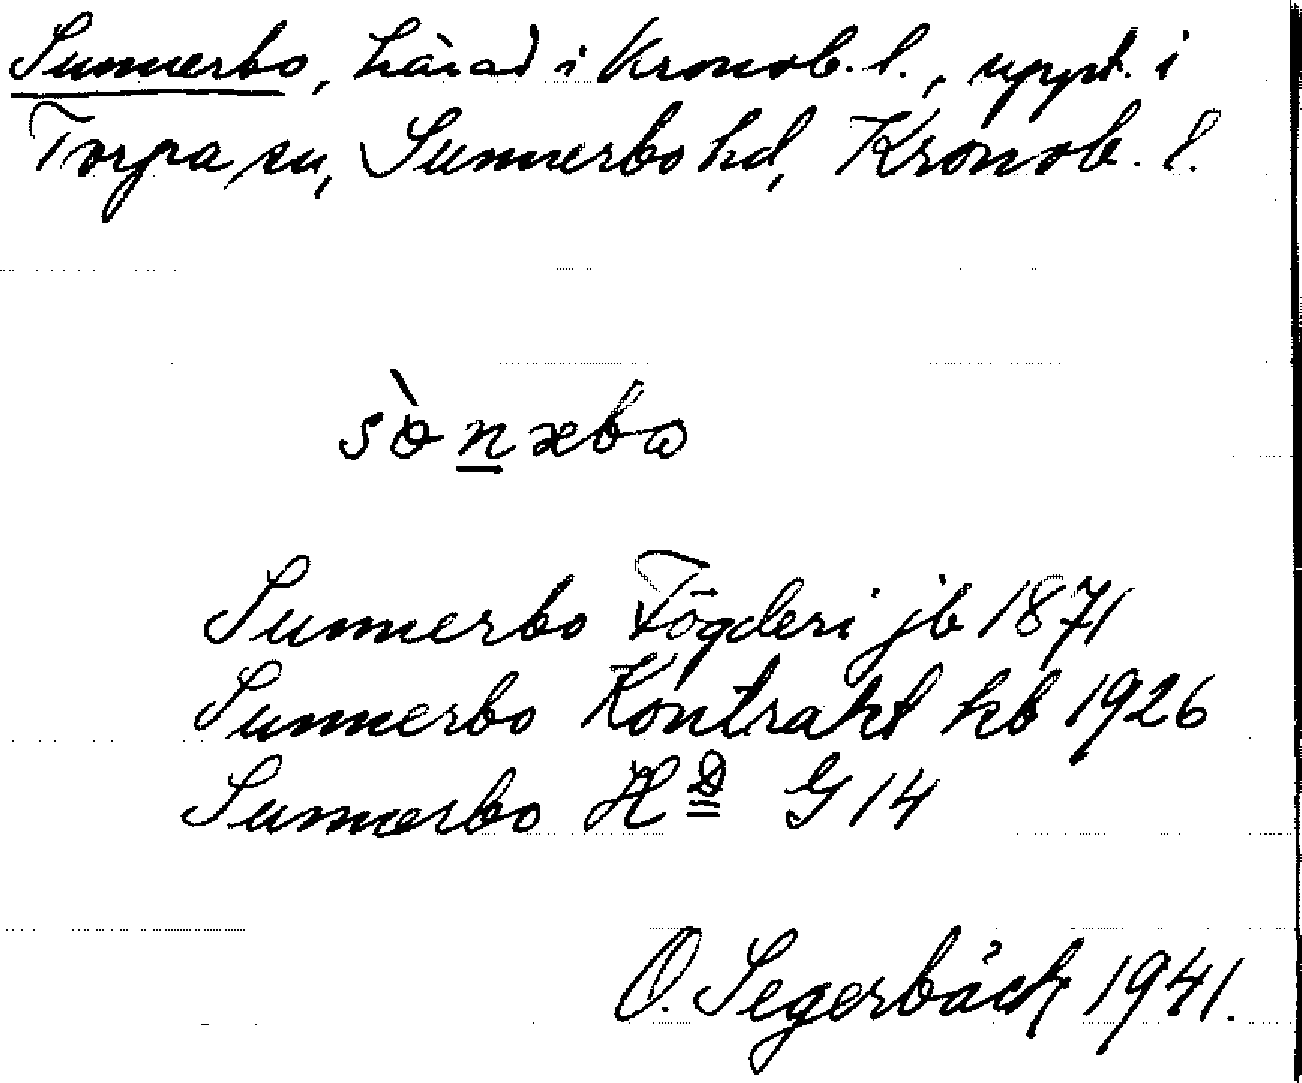 Sunnerbo, härad i Kronob. l., uppt. i
Torpa sn, Sunnerbo hd, Kronob. l.
Sunnerbo Fögderi jb 1871
Sunnerbo Kontrakt kb 1926
Sunnerbo HD G 14
O. Segerbäck 1941.